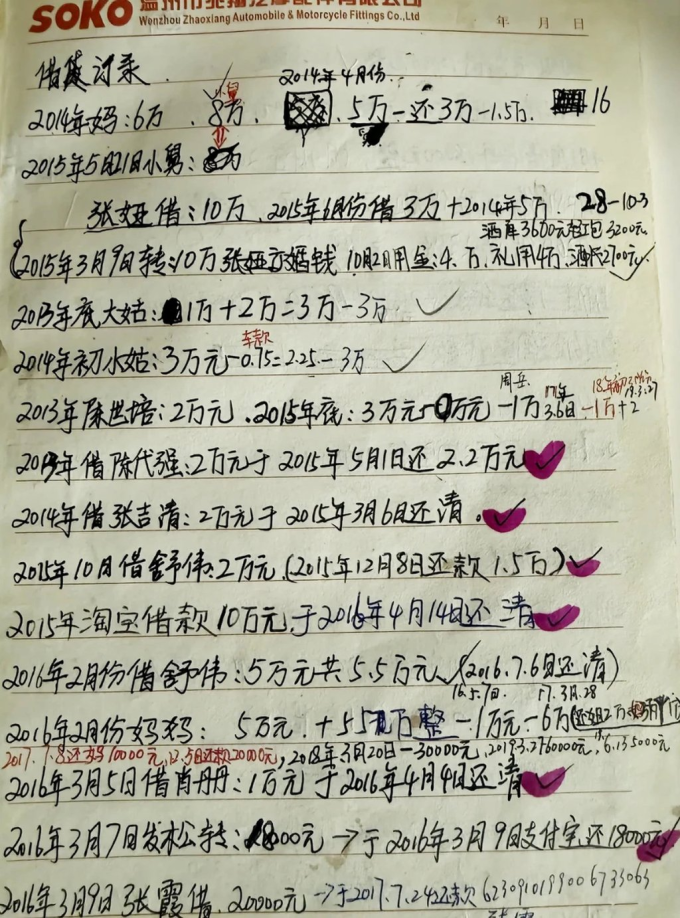 SOKO 温州市兆翔汽摩配件有限公司
Wenzhou Zhaoxiang Automobile & Motorcycle Fittings Co.,Ltd
年 月 日
借贷记录
2014年4月份
2014年妈:6万 8万 5万-还3万-1.5万 16
2015年5月21日小舅:
张娅借:10万、2015年6月份借3万+2014年5万 28-10-3
酒席3600元红包3200元
2015年3月9日转:10万张娅 婚钱 10月2日用金:4.万.礼用4万 2700元
2013年底大姑:1万+2万=3万-3万
车款
2014年初小姑:3万元-0.75=2.25-3万
周岳
2013年陈世培:2万元、2015年底:3万元 万元-1万 3.6日 -1万+2
借陈代强:2万元于2015年5月1日还2.2万元
2014年借张吉清:2万元于2015年3月6日还清
2015年10月借舒伟:2万元(2015年12月8日还款1.5万)
2015年淘宝借款10万元于2016年4月14日还清
2016年2月份借舒伟:5万元共5.5万元(2016.7.6日还清)
16.5.7日. 17.3月.28
2016年2月份妈妈: 5万元+5 万整-1万元-6万
2017.7.8还妈10000元,12.5日还款20000元,2018年3月20日-30000元,
2016年3月5日借肖丹丹:1万元于2016年4月4日还清
2016年3月7日发松转: 8000元→于2016年3月9日支付宝还18000元
2016年3月9日张霞借.20000元→于2017.7.24还款